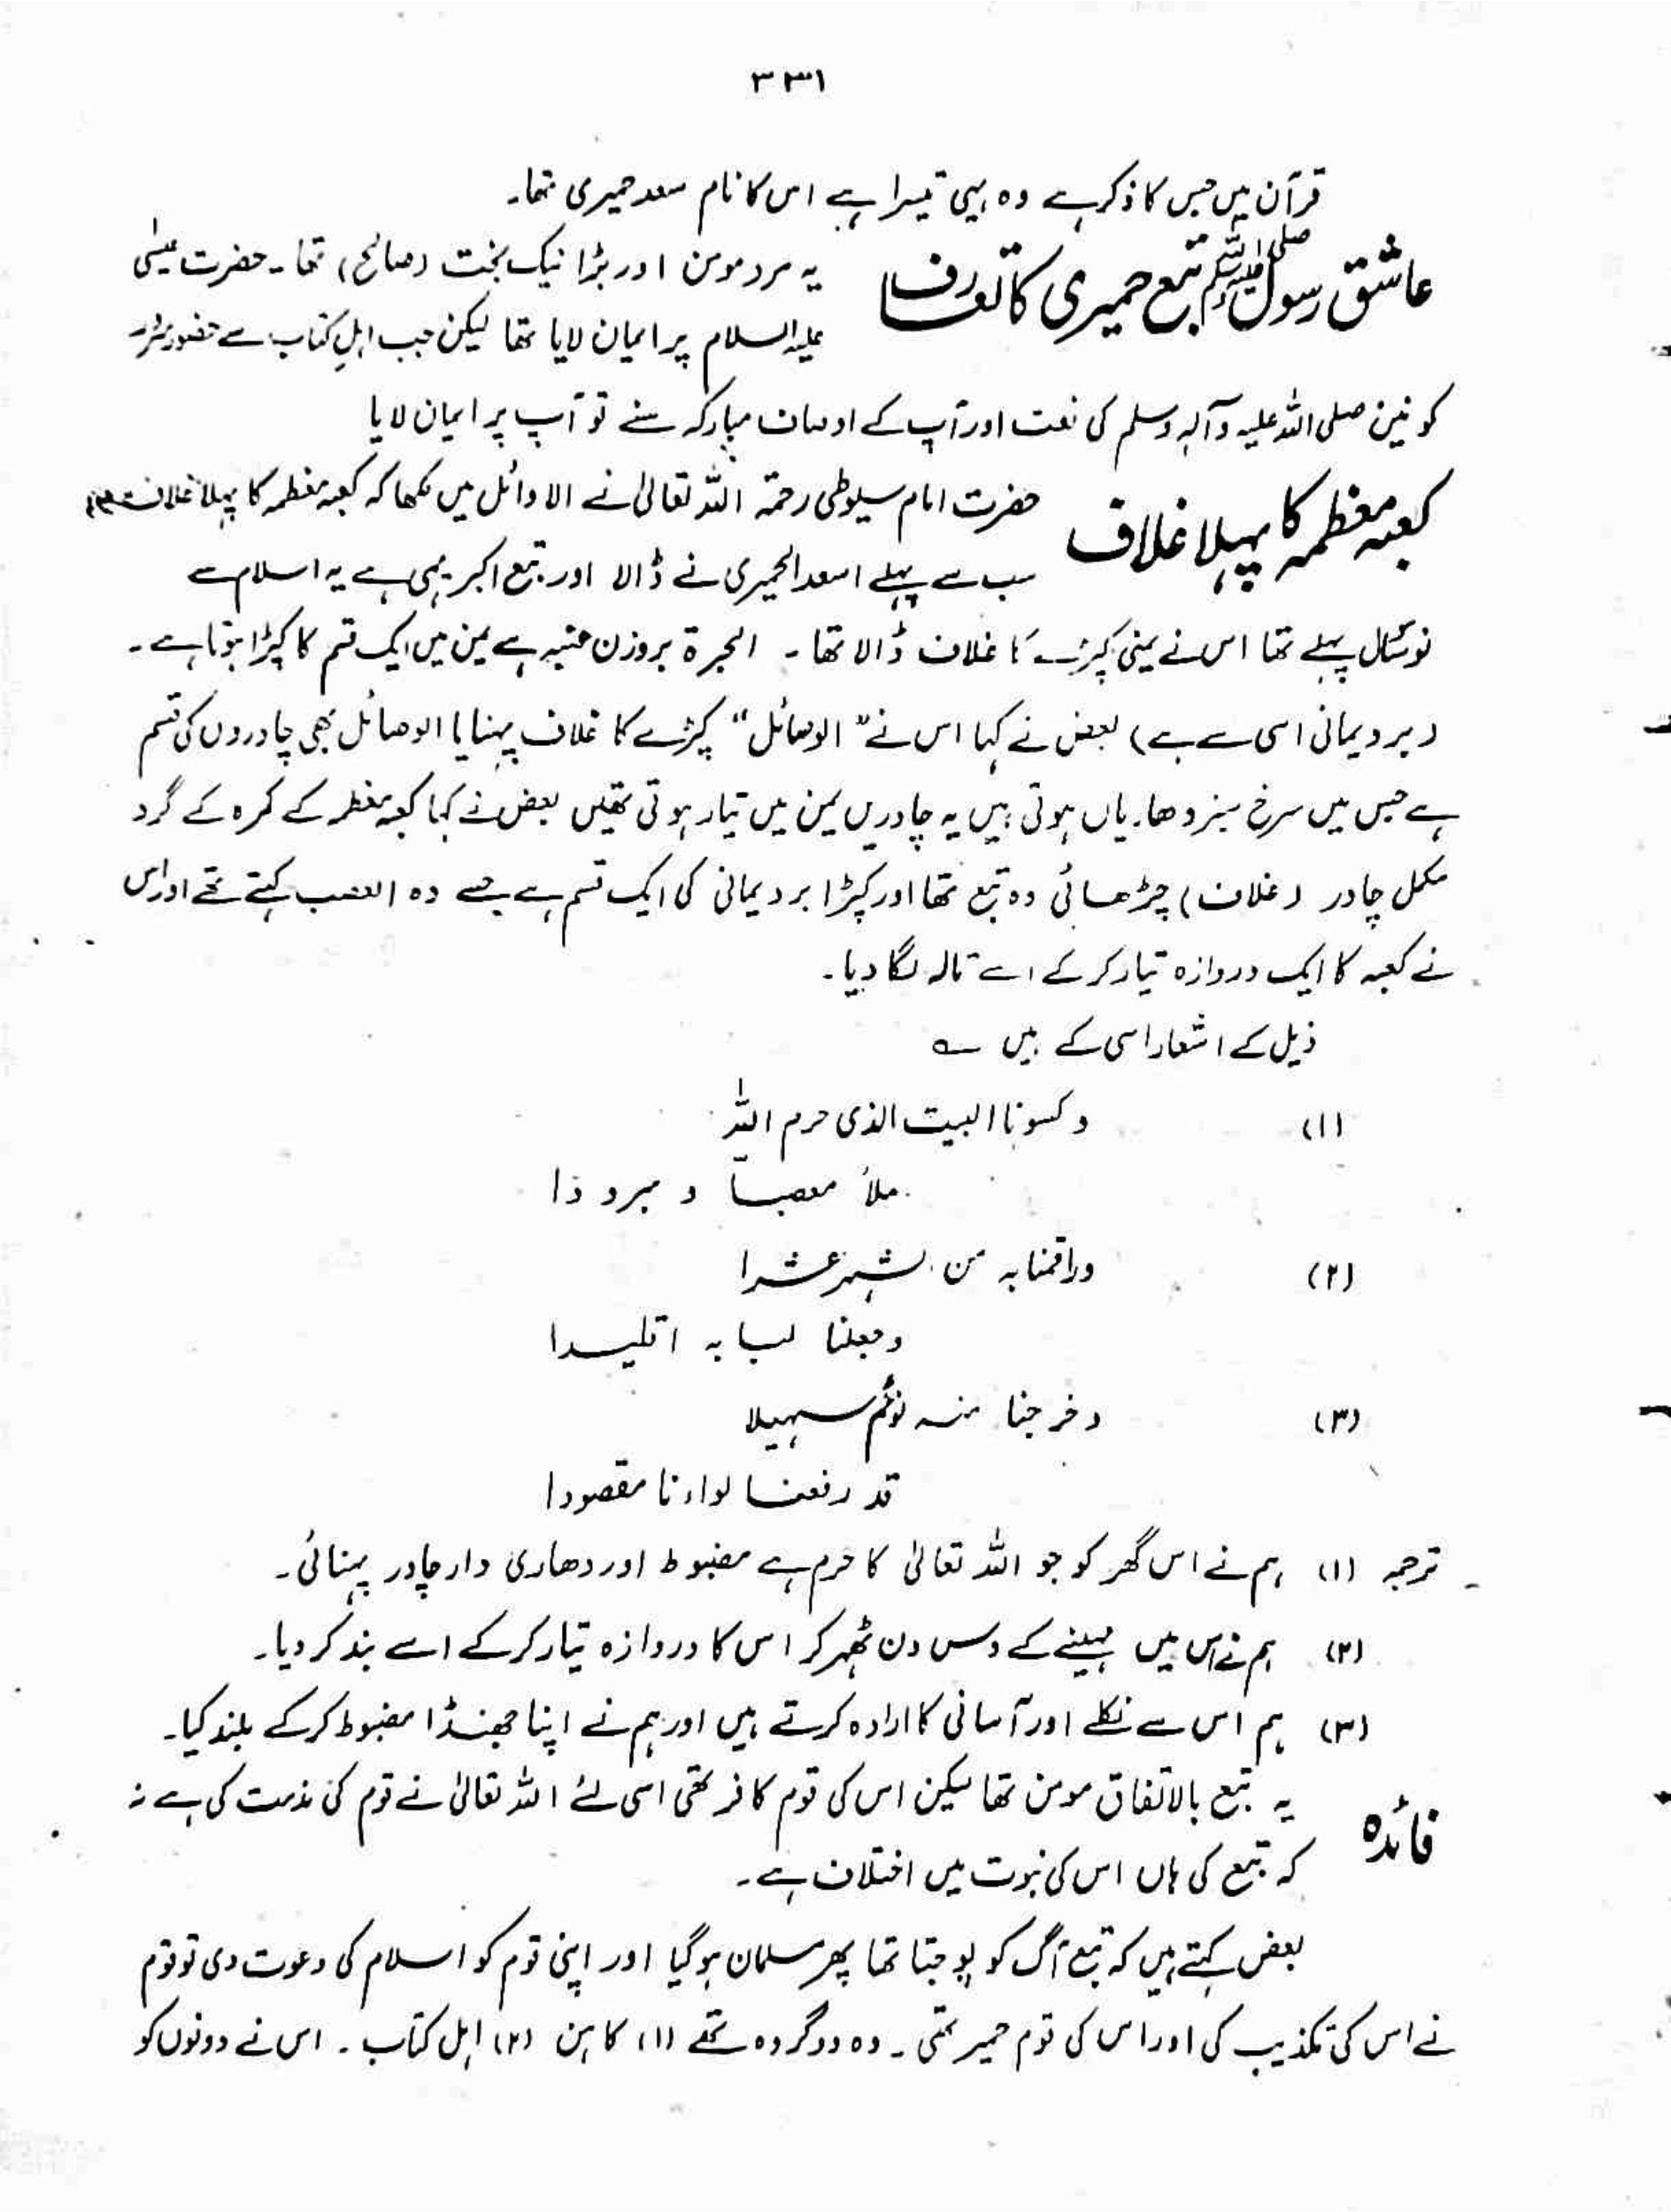 ۳۳۱
قرآن میں جس کا ذکر ہے وہ یہی تیسرا ہے اس کا نام سعد حمیری تھا۔
عاشق رسول صلی اللہ علیہ وسلم تبع حمیری کا تعارف
یہ مرد مومن اور بڑا نیک بخت (صالح) تھا۔ حضرت عیسٰی
علیہ السلام پر ایمان لایا تھا لیکن جب اہلِ کتاب سے حضور سرور
کونین صلی اللہ علیہ وآلہ وسلم کی نعت اور آپ کے اوصاف مبارکہ سنے تو آپ پر ایمان لایا
کعبہ معظمہ کا پہلا غلاف
حضرت امام سیوطی رحمۃ اللہ تعالیٰ نے الاوائل میں لکھا کہ کعبہ معظمہ کا پہلا غلاف
سب سے پہلے اسعد الحمیری نے ڈالا اور تبع اکبر یہی ہے یہ اسلام سے
نو سَو سال پہلے تھا اس نے یمنی کپڑے کا غلاف ڈالا تھا۔ الحبرۃ بروزن عنبہ ہے یمن میں ایک قسم کا کپڑا ہوتا ہے۔
(بردیمانی اسی سے ہے) بعض نے کہا اس نے "الوصائل" کپڑے کا غلاف پہنایا الوصائل بھی چادروں کی قسم
ہے جس میں سرخ سبز دھاریاں ہوتی ہیں یہ چادریں یمن میں تیار ہوتی تھیں بعض نے کہا کعبہ معظمہ کے کمرہ کے گرد
مکمل چادر (غلاف) چڑھائی وہ تبع تھا اور کپڑا بردیمانی کی ایک قسم ہے جسے وہ العصب کہتے تھے اور اس
نے کعبہ کا ایک دروازہ تیار کر کے اسے تالہ لگا دیا۔
ذیل کے اشعار اسی کے ہیں ؎
(۱) وکسونا البیت الذی حرم اللہ
ملاً معصباً و برودا
(۲) وراقمنا بہ من شہر عشرا
وجعلنا لبابہ اقلیدا
(۳) وخرجنا منہ نؤم سہیلا
قد رفعنا لواءنا مقصودا
ترجمہ (۱) ہم نے اس گھر کو جو اللہ تعالیٰ کا حرم ہے مضبوط اور دھاری دار چادر پہنائی۔
(۲) ہم نے اس میں مہینے کے دس دن ٹھہر کر اس کا دروازہ تیار کر کے اسے بند کر دیا۔
(۳) ہم اس سے نکلے اور آسانی کا ارادہ کرتے ہیں اور ہم نے اپنا جھنڈا مضبوط کر کے بلند کیا۔
فائدہ
یہ تبع بالاتفاق مومن تھا لیکن اس کی قوم کافر تھی اسی لئے اللہ تعالیٰ نے قوم کی مذمت کی ہے نہ
کہ تبع کی ہاں اس کی نبوت میں اختلاف ہے۔
بعض کہتے ہیں کہ تبع آگ کو پوجتا تھا پھر مسلمان ہو گیا اور اپنی قوم کو اسلام کی دعوت دی تو قوم
نے اس کی تکذیب کی اور اس کی قوم حمیر تھی۔ وہ دو گروہ تھے (۱) کاہن (۲) اہل کتاب۔ اس نے دونوں کو